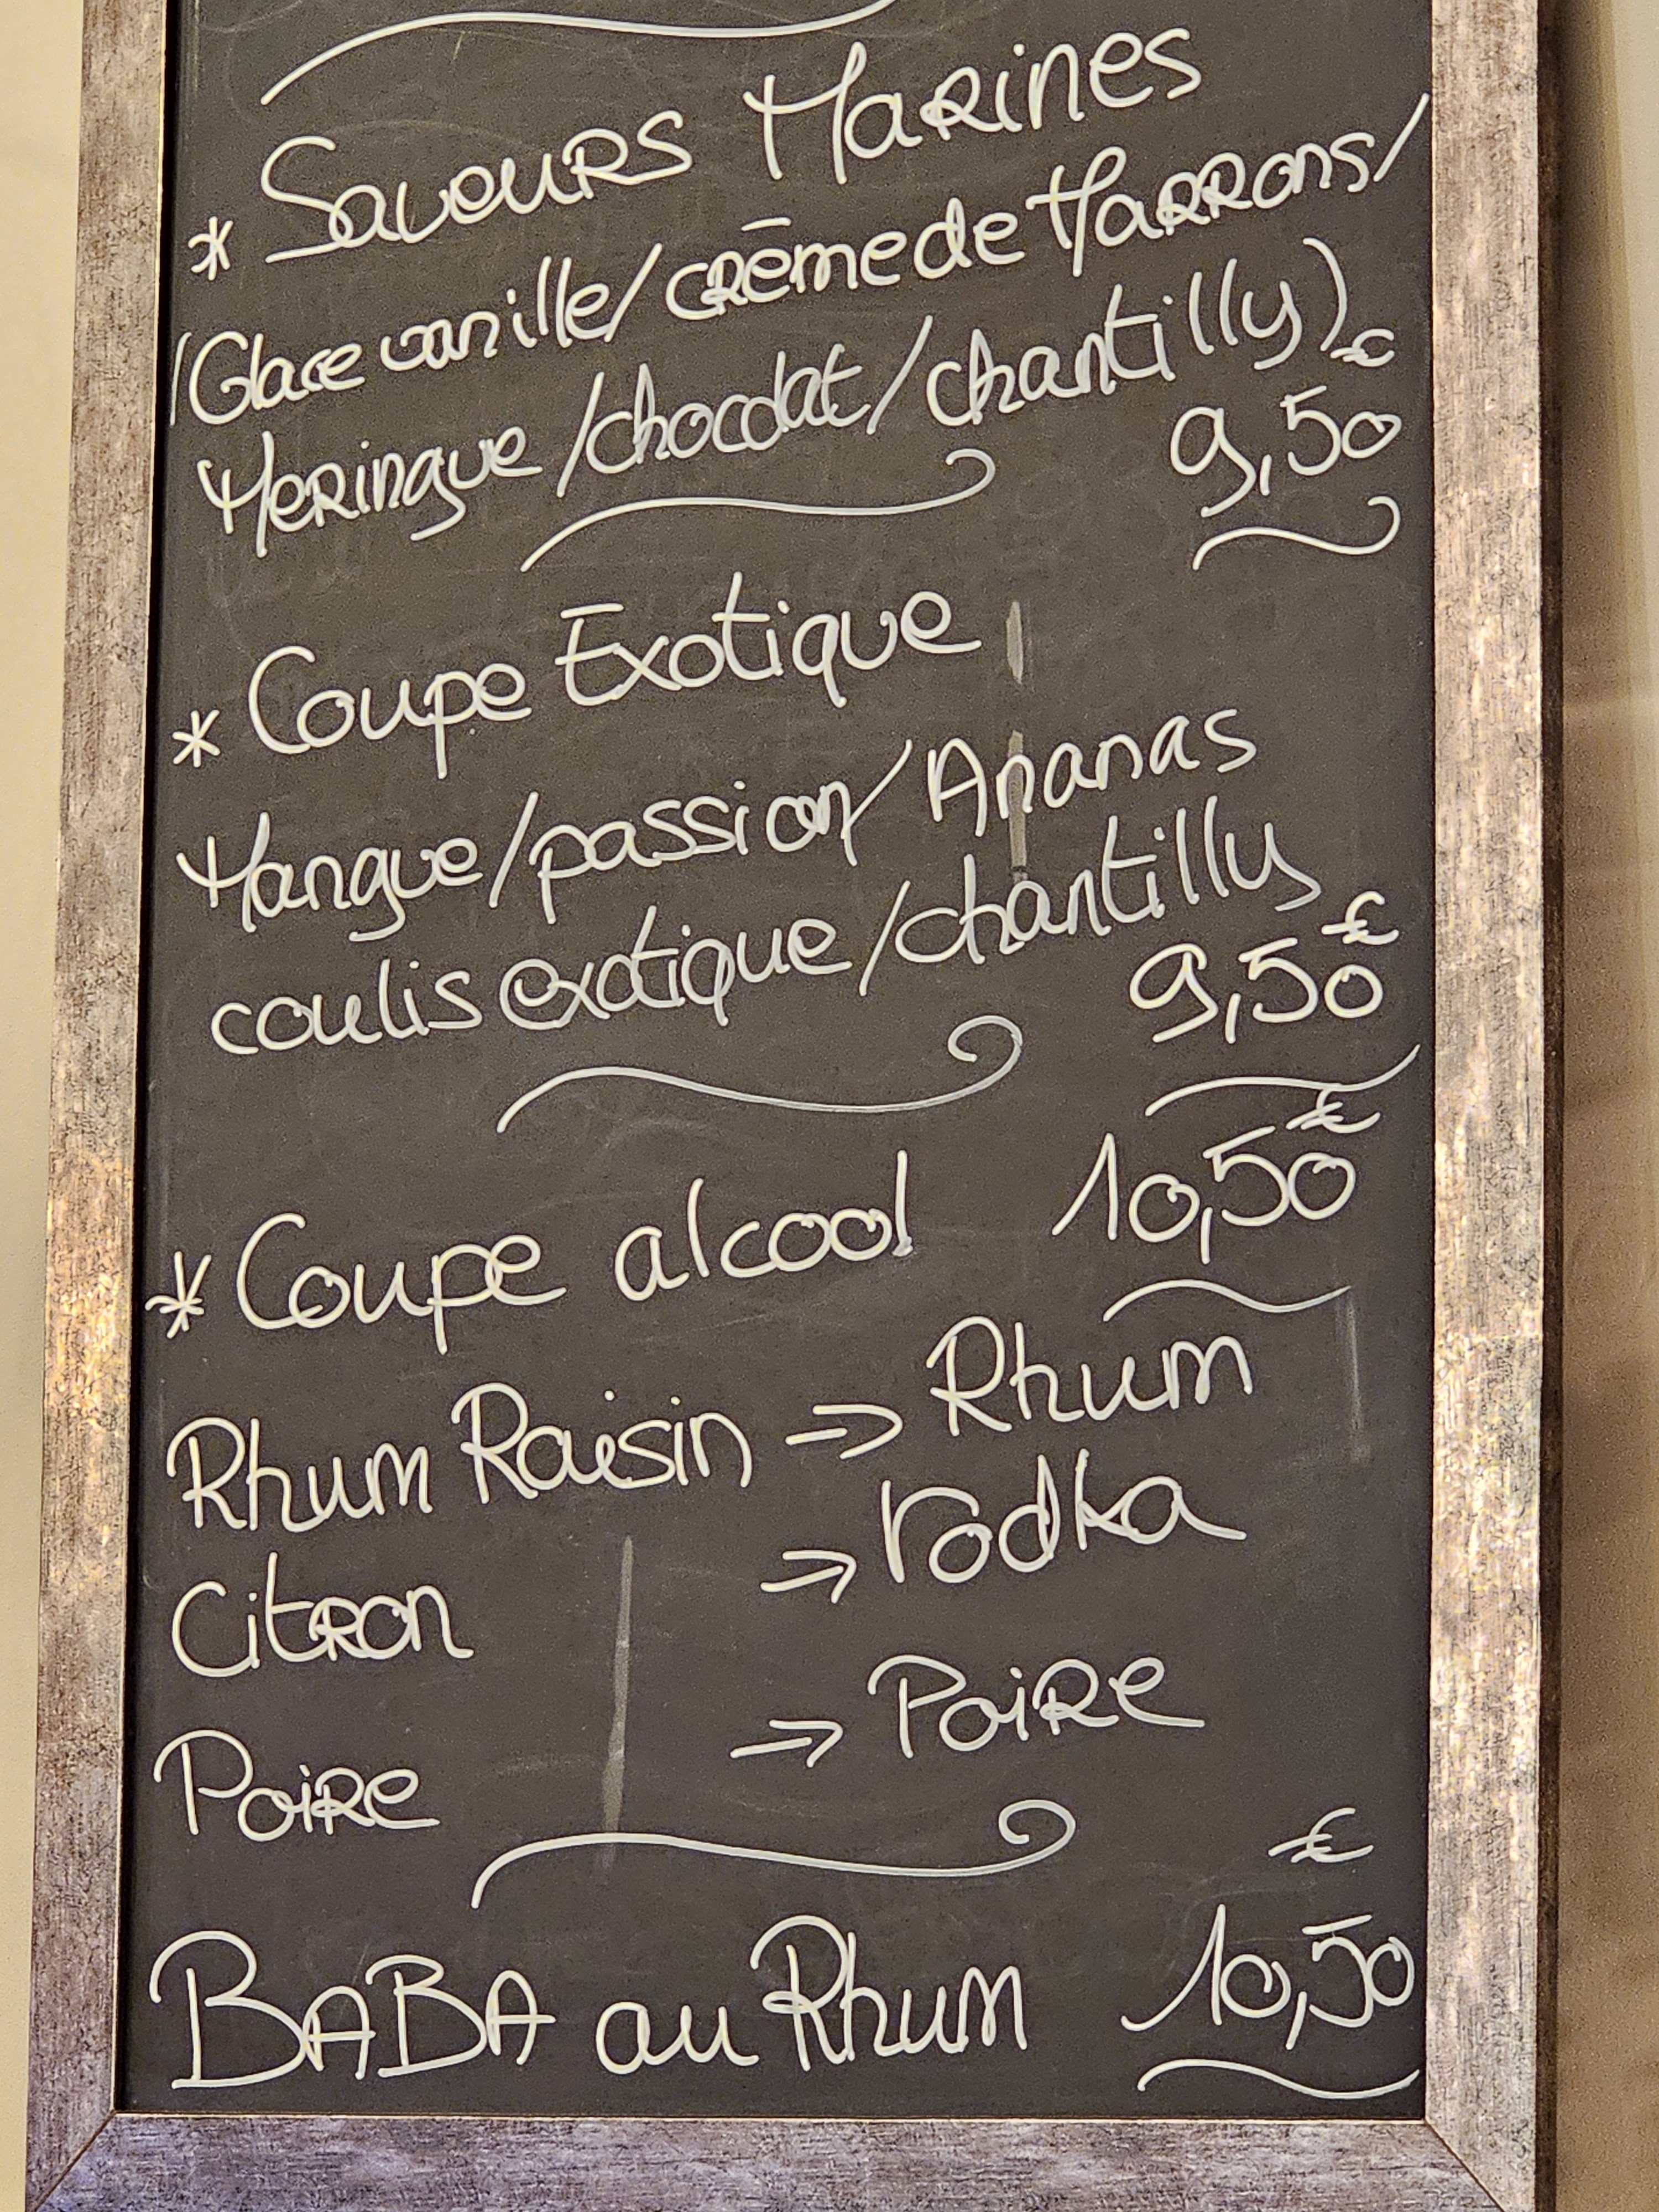 * Saveurs Marines
(Glace vanille/crème de Marrons/
Meringue/chocolat/chantilly)
9,50€
* Coupe Exotique
Mangue/passion/Ananas
coulis exotique/chantilly
9,50€
* Coupe alcool 10,50€
Rhum Raisin → Rhum
Citron → Vodka
Poire → Poire
BABA au Rhum 10,50€